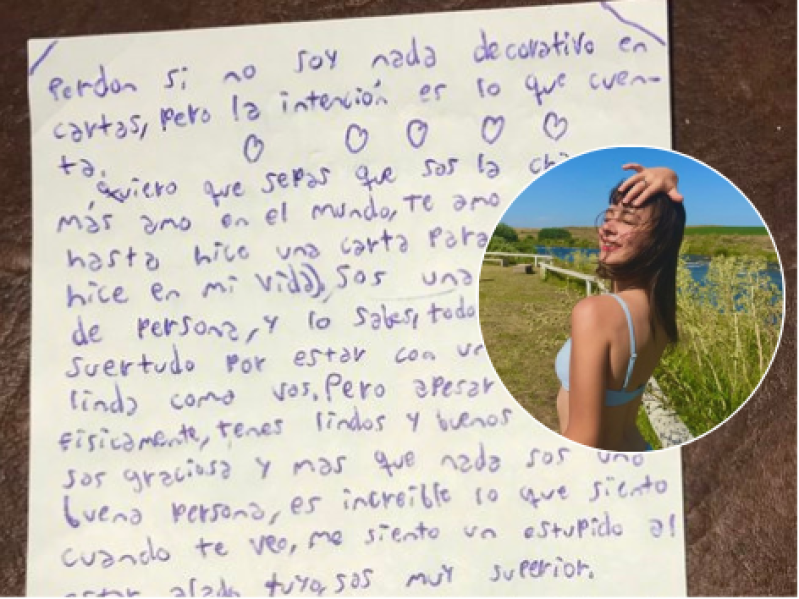 Perdon si no soy nada decorativo en
cartas, pero la intención es lo que cuen-
ta.
Quiero que sepas que sos la
más amo en el mundo, te amo
hasta hice una carta para
hice en mi vida), sos una
de persona, y lo sabes, todo
suertudo por estar con
linda como vos. Pero apesar
fisicamente, tenes lindos y buenos
sos graciosa y mas que nada sos una
buena persona, es increíble lo que siento
cuando te veo, me siento un estupido al
estar alado tuyo, sos muy superior.